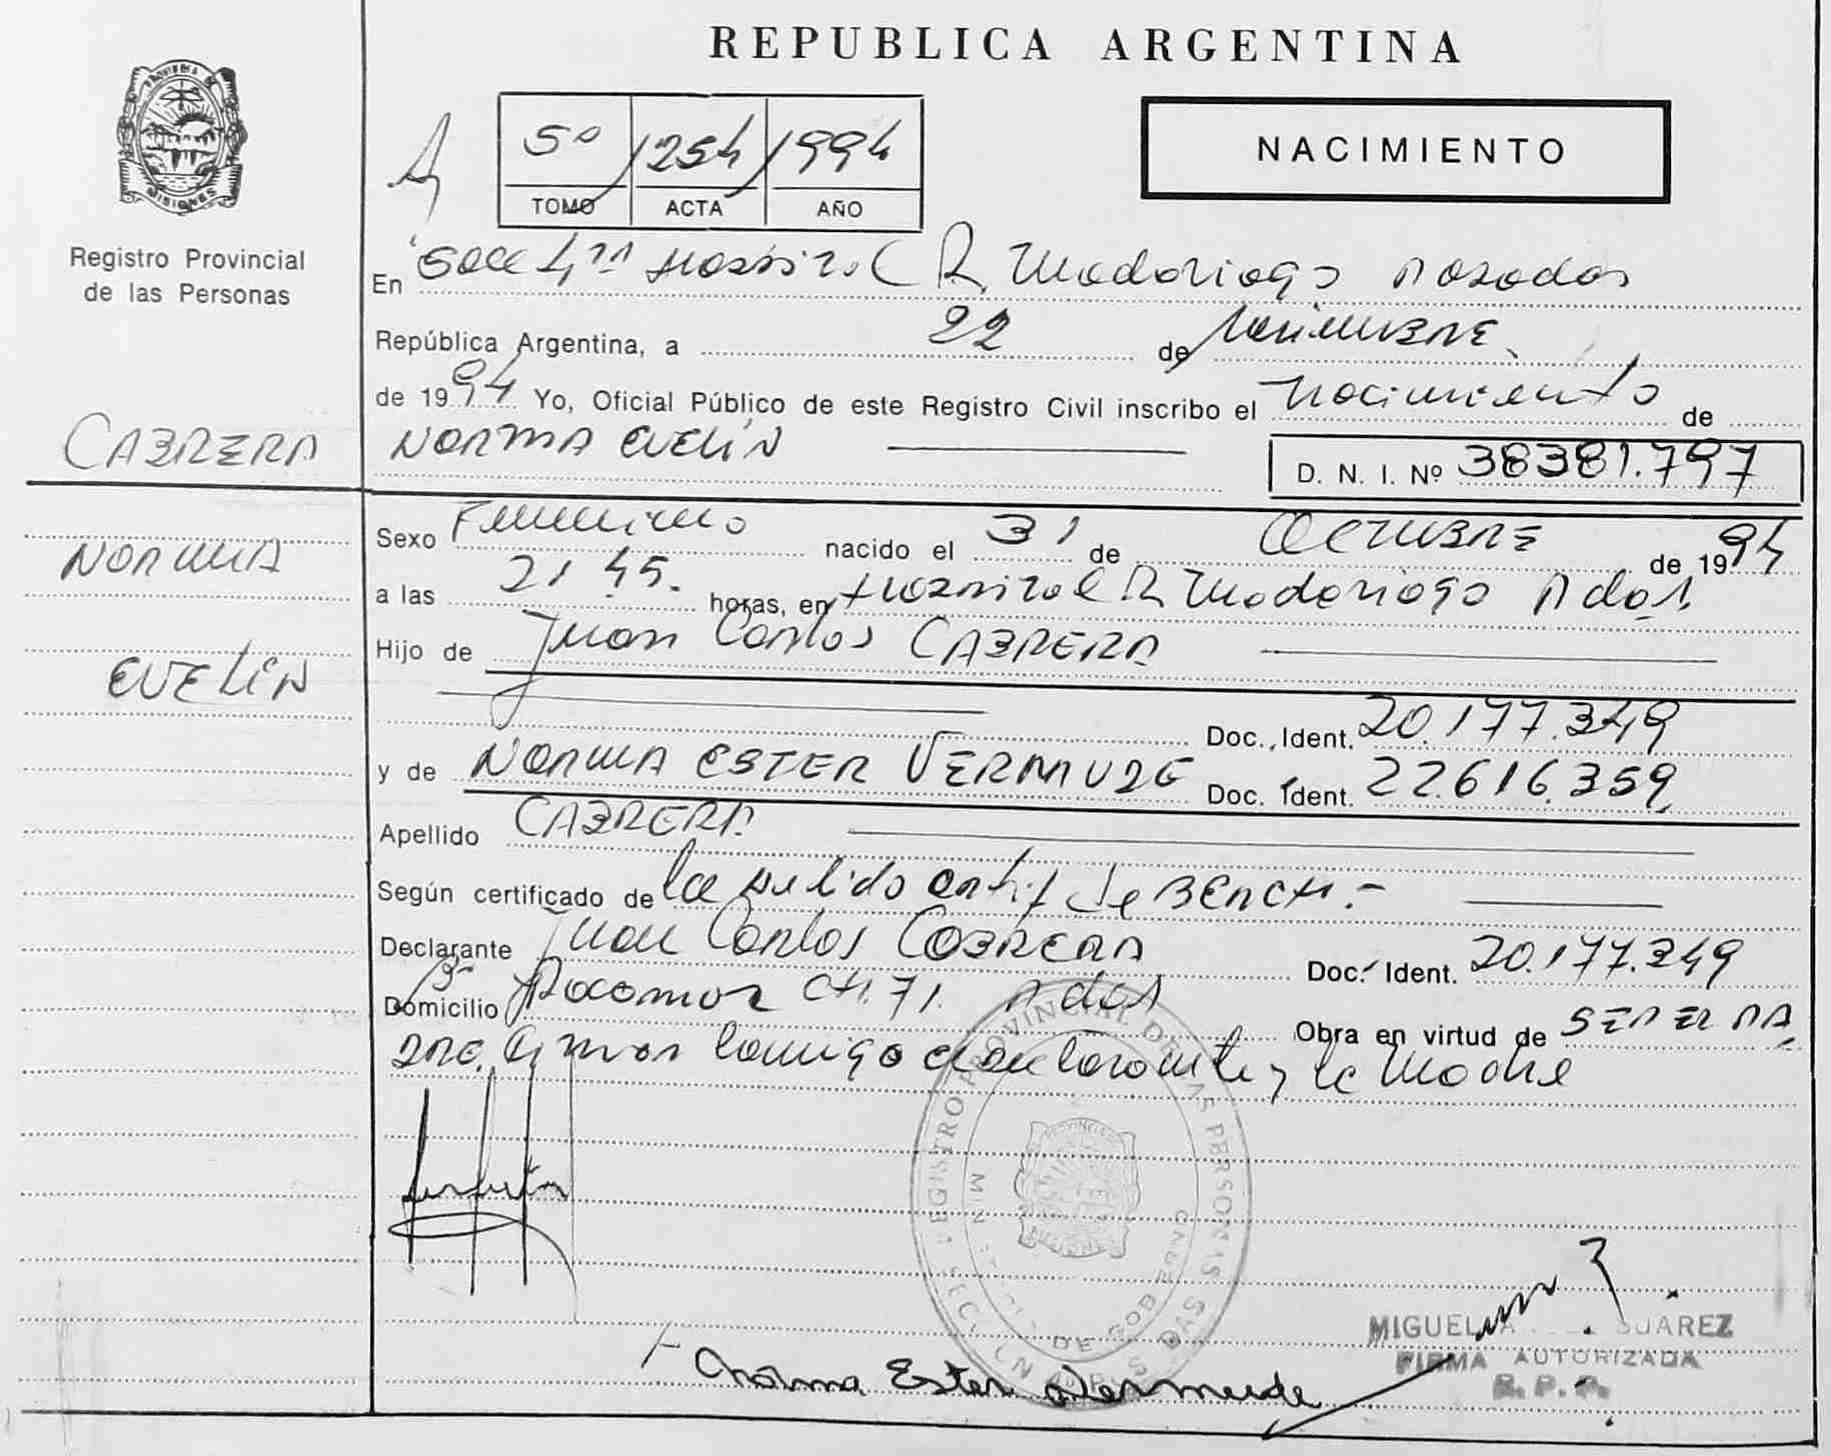 REPUBLICA ARGENTINA
PROVINCIA DE MISIONES
Registro Provincial
de las Personas
5º 1254 1994
TOMO ACTA AÑO
NACIMIENTO
En Hospital R. Madariaga Posadas
República Argentina, a 22 de Noviembre
de 1994 Yo, Oficial Público de este Registro Civil inscribo el nacimiento de
CABRERA
NORMA EVELIN
D. N. I. Nº 38381.797
NORMA
EVELIN
Sexo Femenino nacido el 31 de OCTUBRE de 1994
a las 21 45. horas, en Hospital R. Madariaga Pdas.
Hijo de Juan Carlos CABRERA
Doc. Ident. 20.177.349
y de NORMA ESTER VERMUDE Doc. Ident. 22.616.359
Apellido CABRERA
Según certificado de la
Declarante Juan Carlos CABRERA Doc. Ident. 20.177.349
Domicilio CH. 71. Pdas Obra en virtud de SER EL PA
DRE. conmigo declarante y la Madre
REGISTRO PROVINCIAL DE LAS PERSONAS
Norma Ester Vermude
MIGUEL SUAREZ
FIRMA AUTORIZADA
R. P. P.